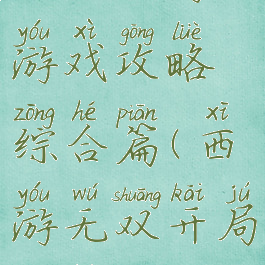 yóu xì gōng lüè
游戏攻略
zōng hé piān xī
综合篇(西
yóu wú shuāng kāi jú
游无双开局